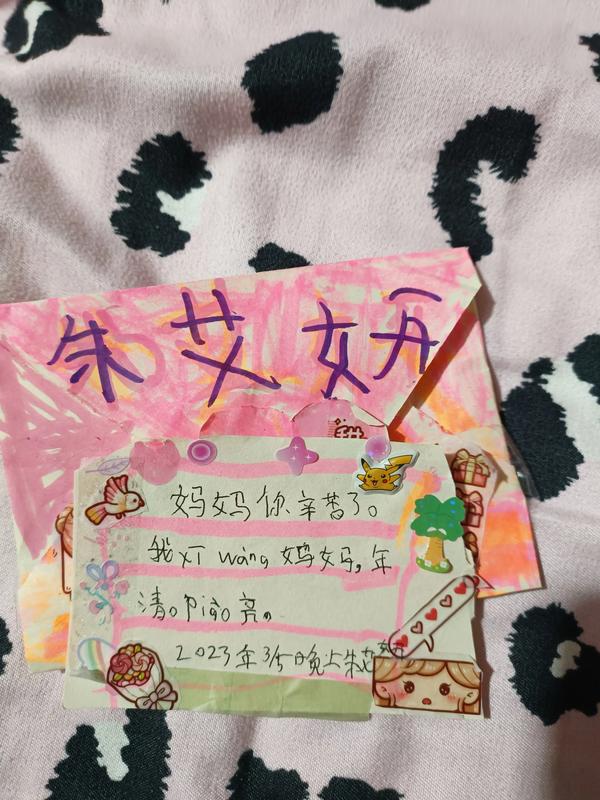 朱艾妍
妈妈你辛苦了。
我 wàng 妈妈。年
清。piāo 亮。
2023年3/5日晚上朱艾